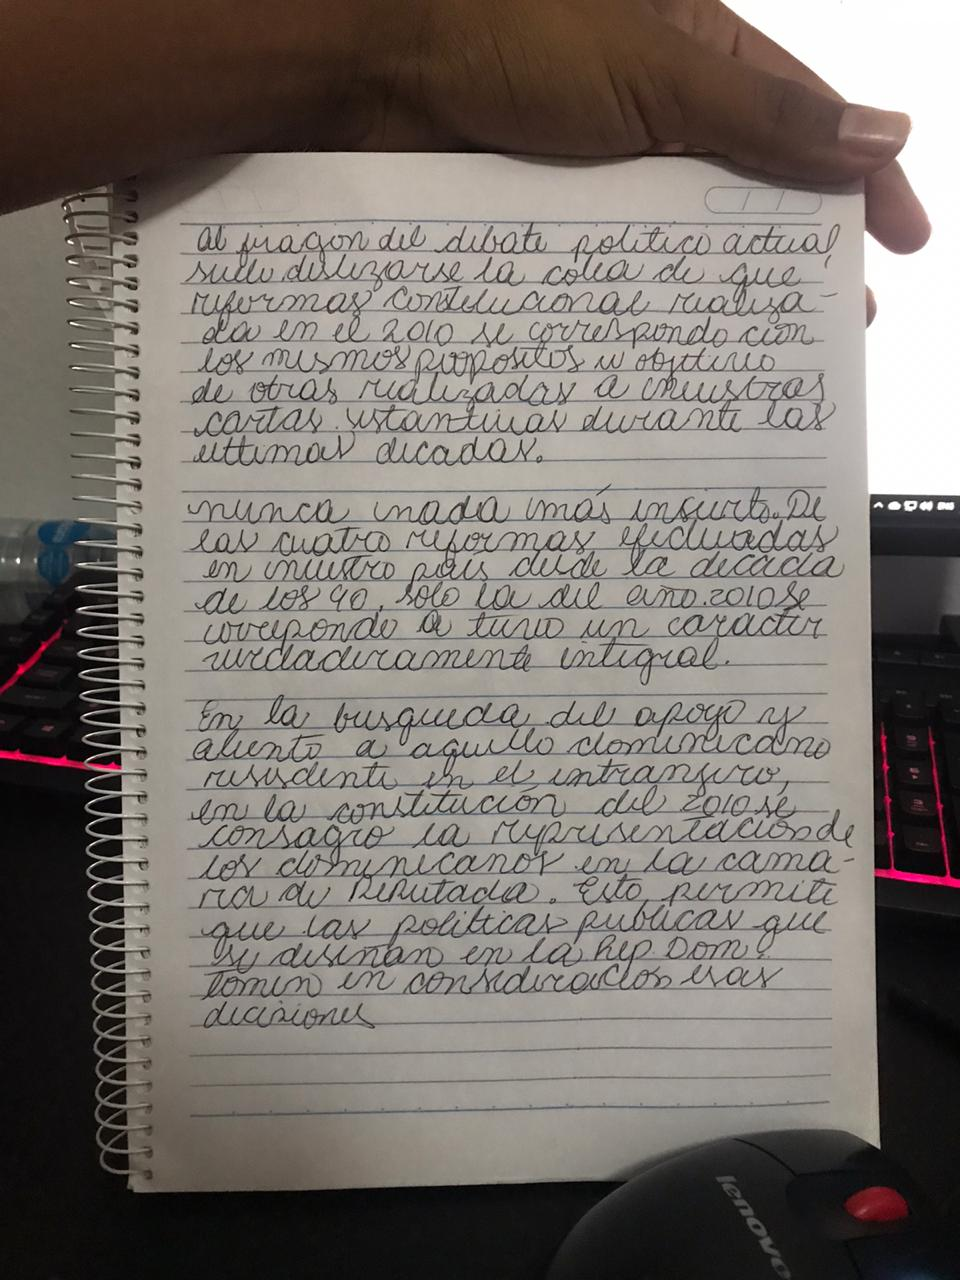 al fragon del debate politico actual,
suele deslizarse la colea de que
reformas constitucional realiza-
da en el 2010 se correspondo con
los mismos propositos u objetivo
de otras realizadas a nuestras
cartas sustantivas durante las
ultimas decadas.
nunca nada más incierto. De
las cuatro reformas efectuadas
en nuestro pais desde la decada
de los 90, solo la del año 2010 se
correponde a tuvo un caracter
verdaderamente integral.
En la busqueda del apoyo y
aliento a aquello dominicano
residente en el extranjero,
en la constitución del 2010 se
consagro la representación de
los dominicanos en la cama-
ra de Diputada. Esto permite
que las politicas publicas que
se diseñan en la Rep. Dom.
tomen en consideracion esas
decisiones
lenovo